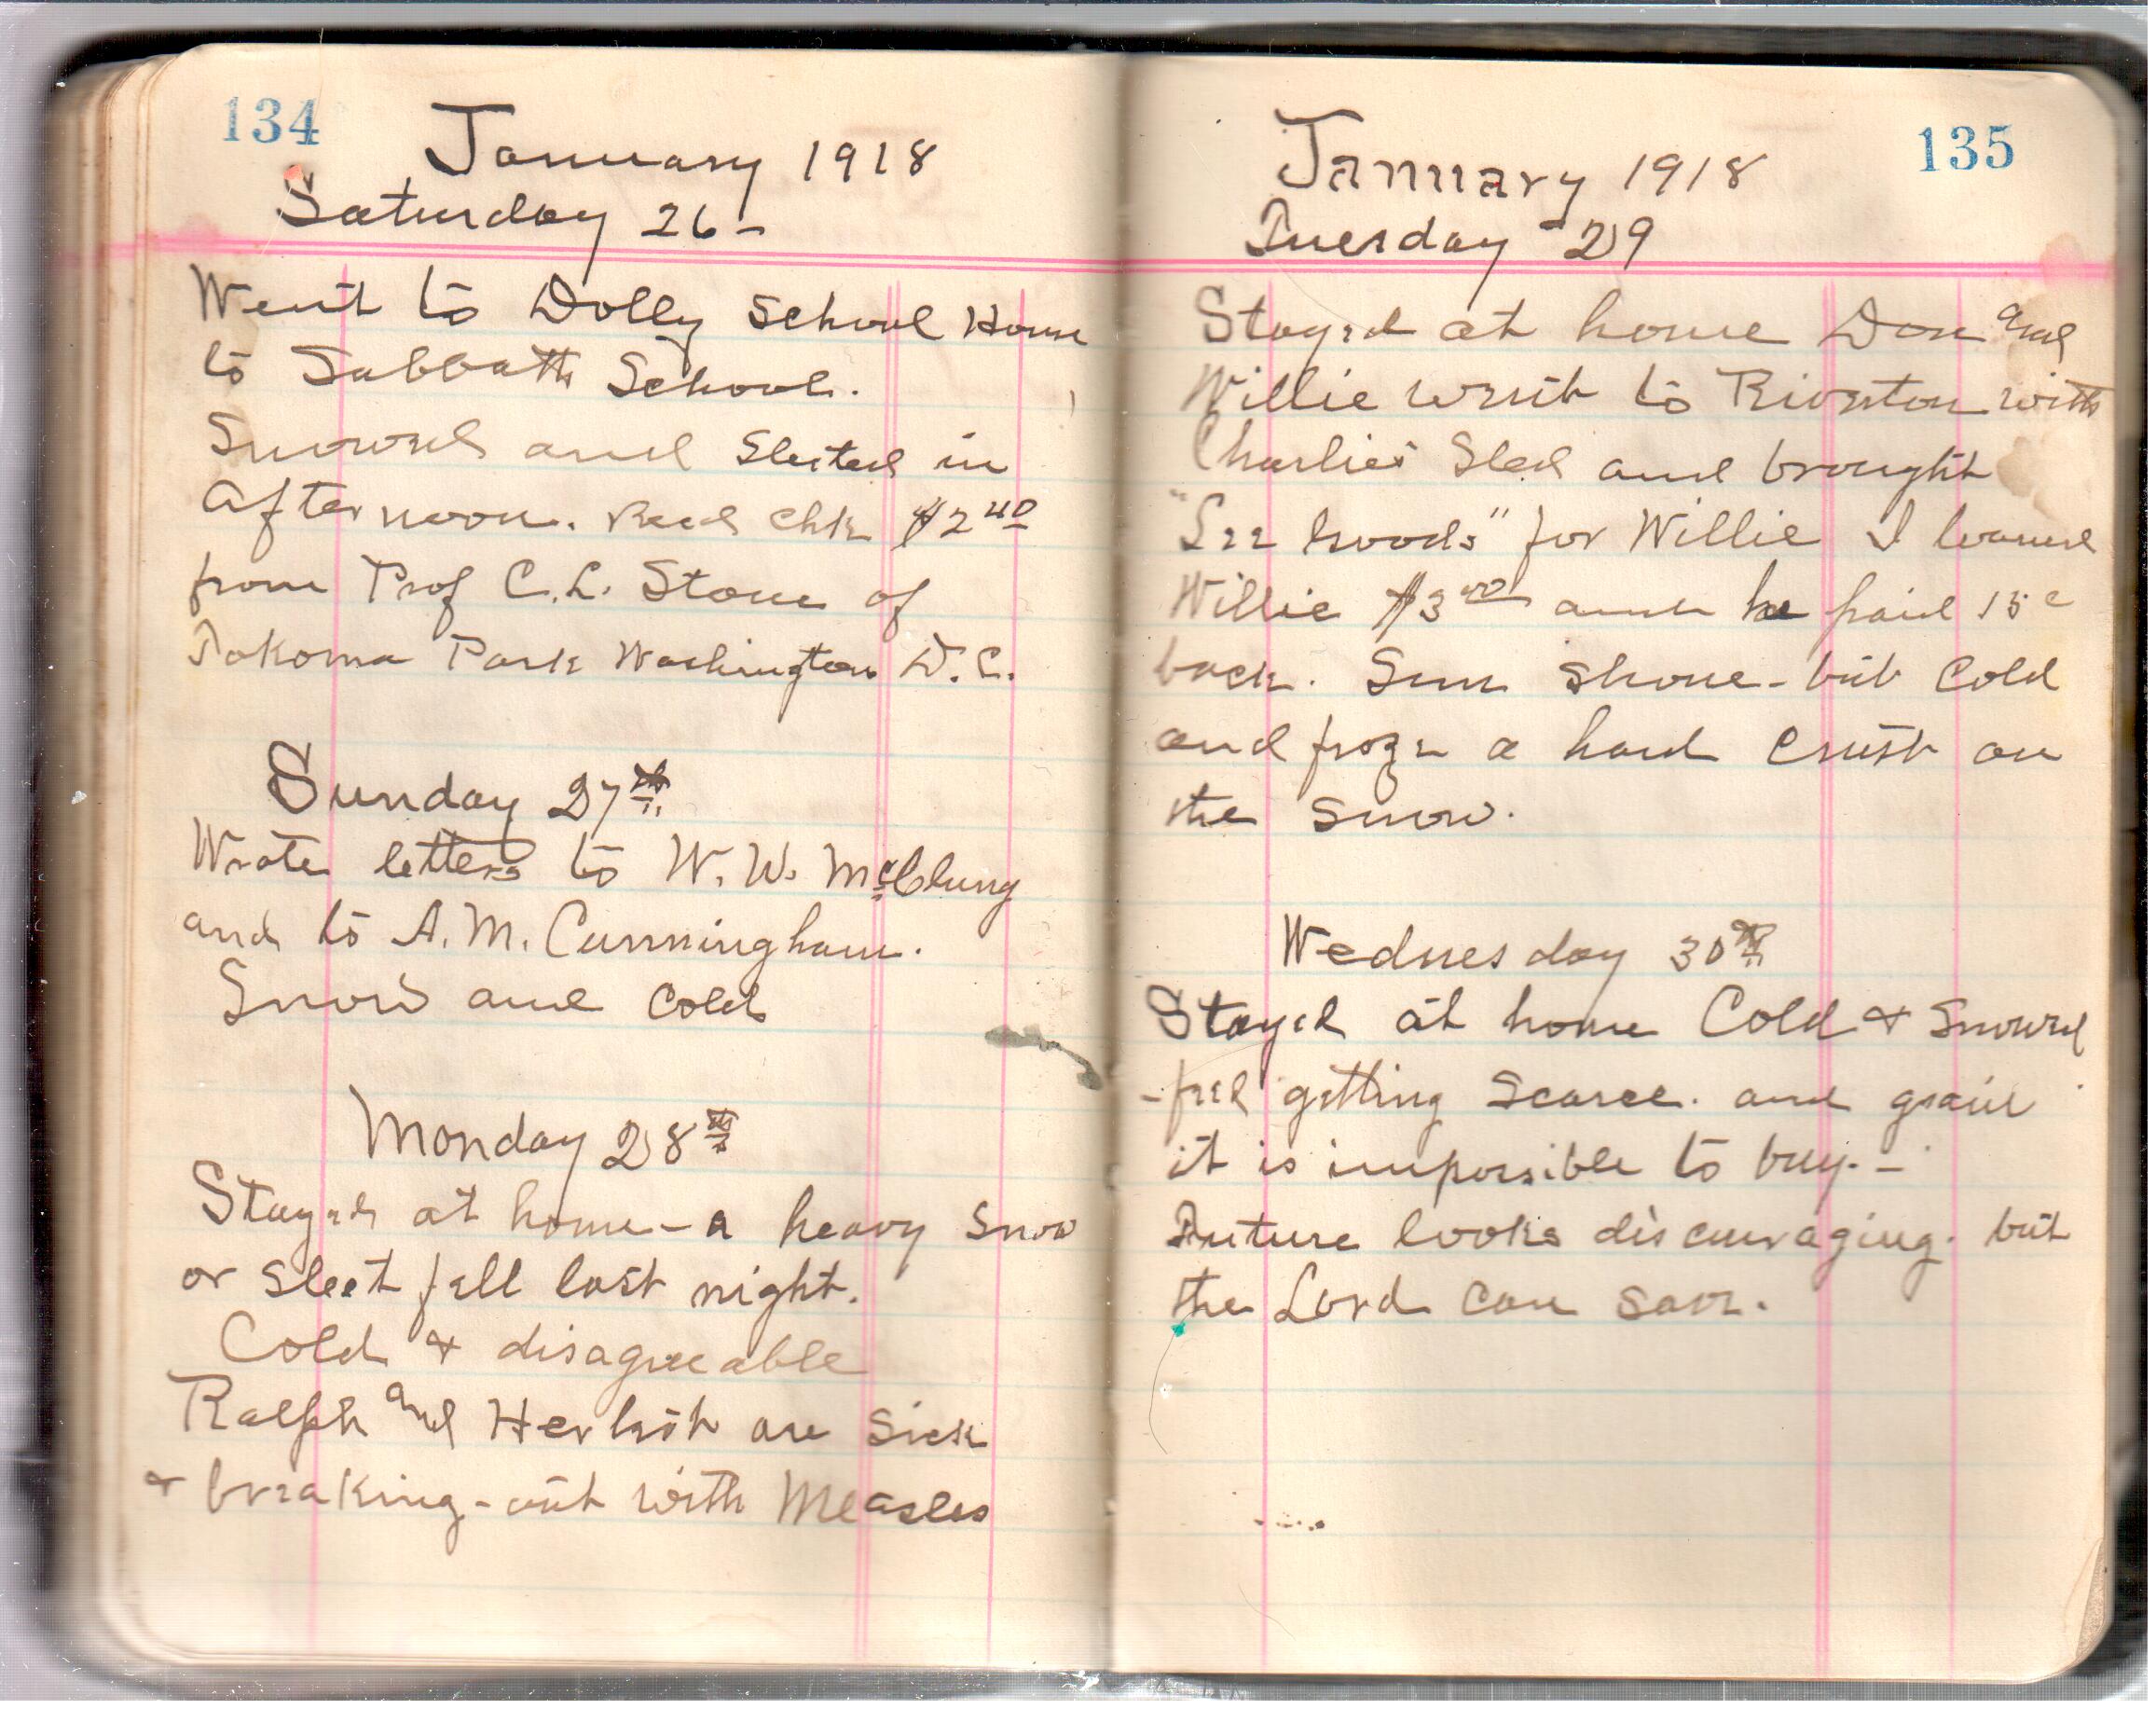 134
January 1918
Saturday 26-
Went to Dolly School House
to Sabbath School.
Snowed and Sleited in
afternoon. Recd chk $2 40
from Prof C.L. Stone of
Takoma Park Washington D.C.
Sunday 27th
Wrote letters to W. W. McClung
and to A. M. Cunningham.
Snow and cold
Monday 28th
Stayed at home - a heavy snow
or sleet fell last night.
Cold & disagreeable
Ralph and Herbert are sick
& breaking-out with Measles
135
January 1918
Tuesday 29
Stayed at home Don and
Willie went to with
Charlies Sled and brought
"Lee Goods" for Willie I loaned
Willie $3 00 and he paid 15c
back. Sun shone - but cold
and froze a hard crust on
the snow.
Wednesday 30th
Stayed at home Cold & Snowed
-feed getting scarce. and grain
it is impossible to buy. -
Future looks discouraging. but
the Lord can save.